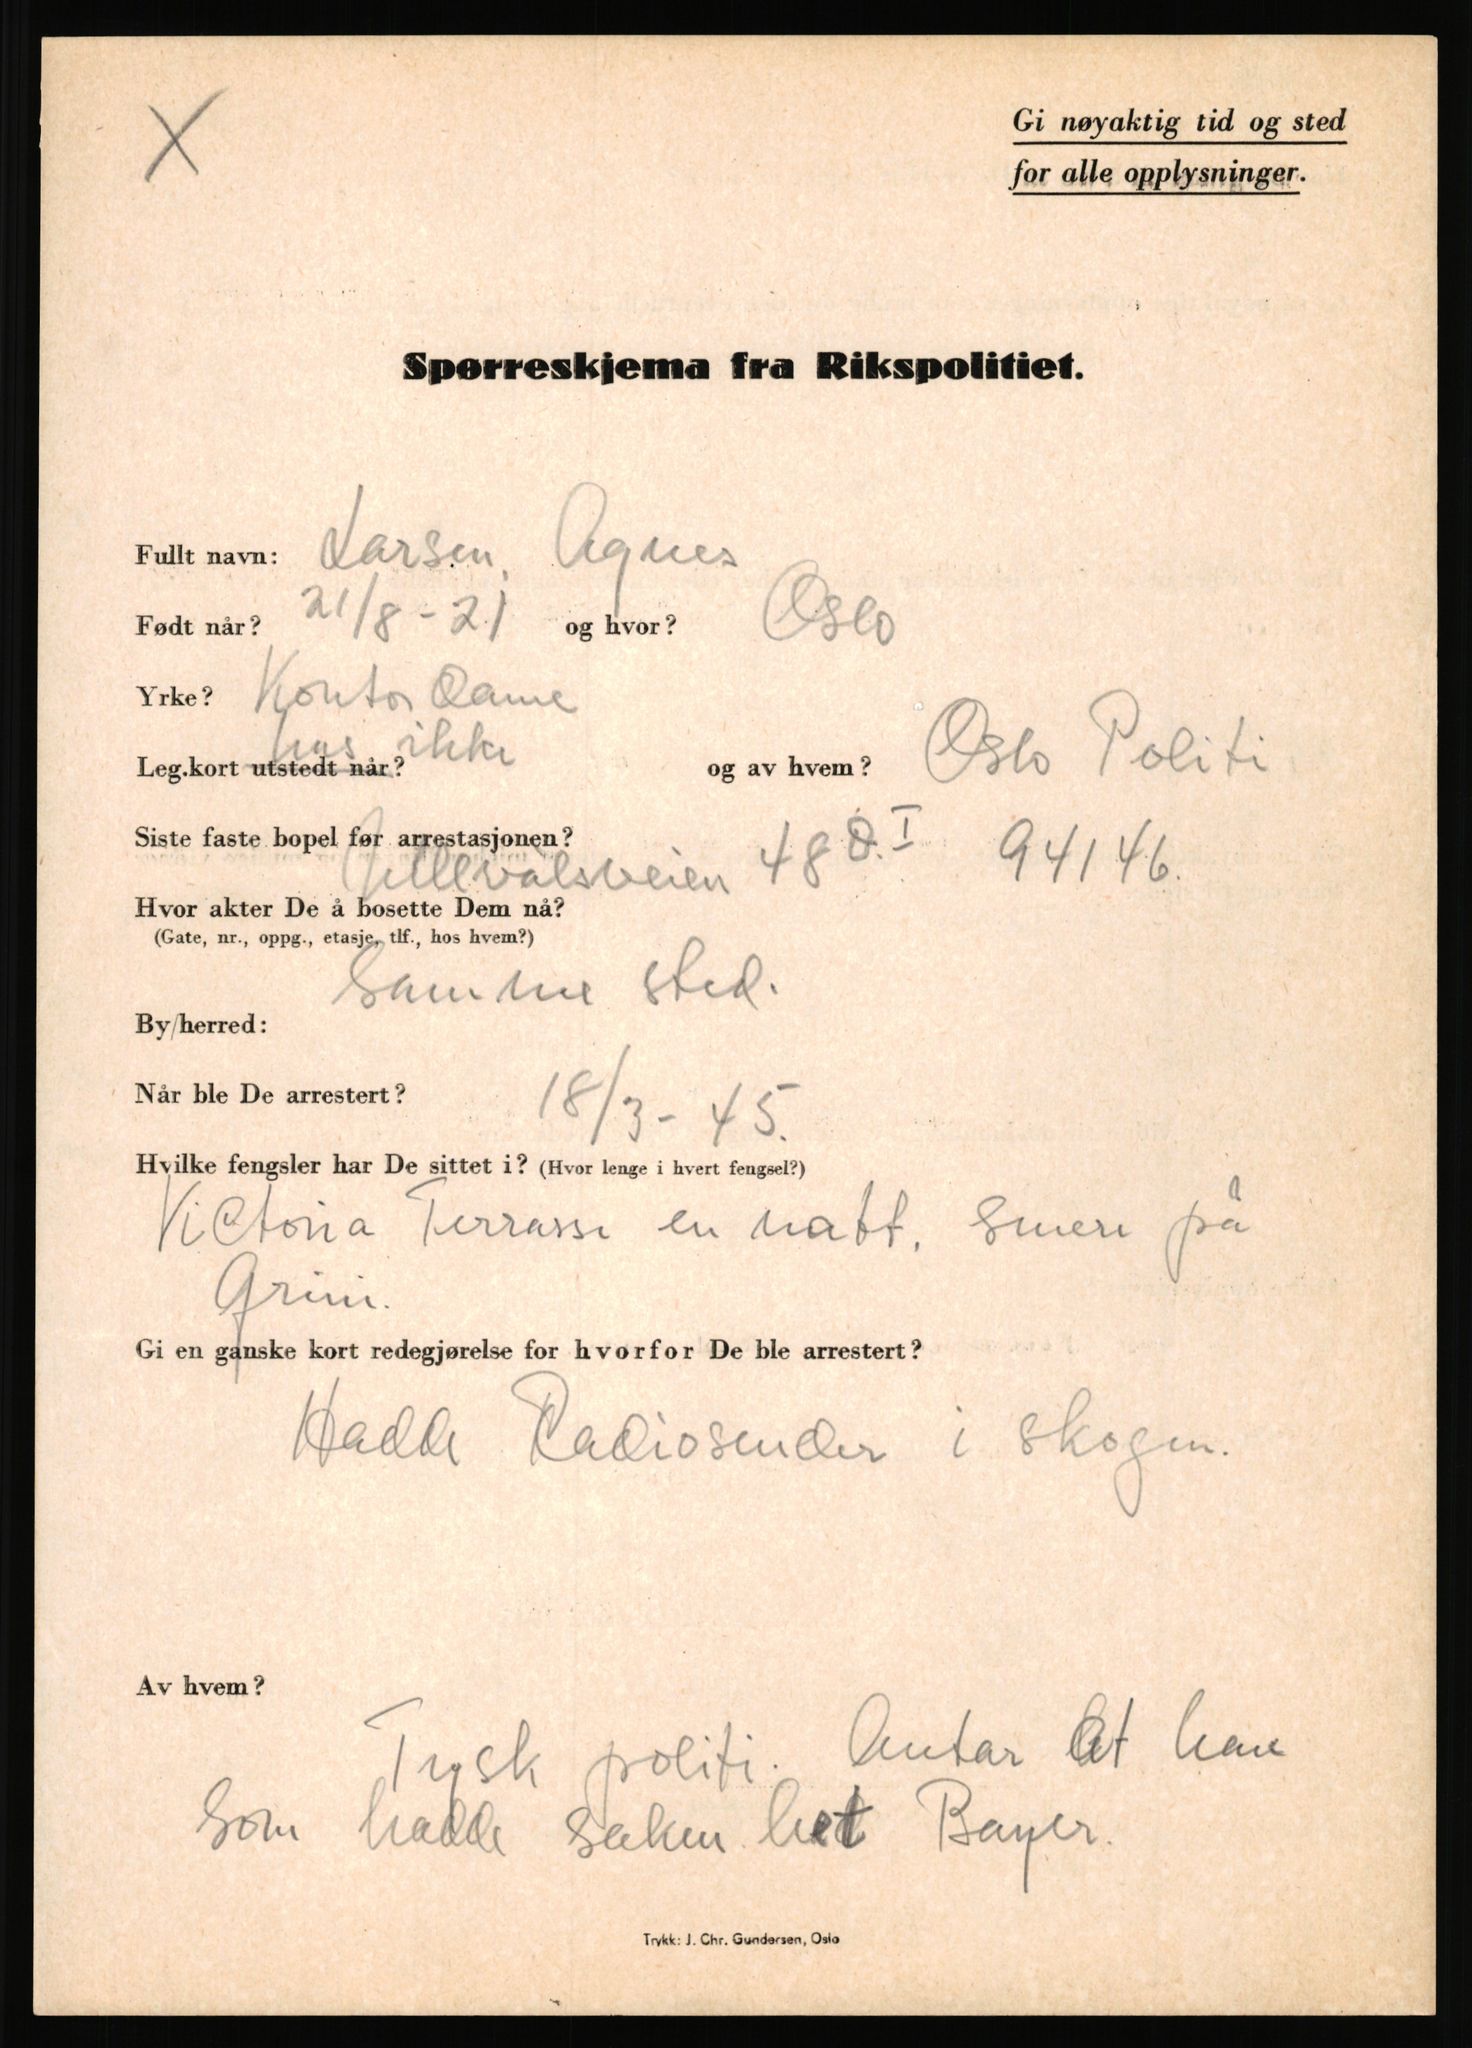 X
Gi nøyaktig tid og sted
for alle opplysninger.
Spørreskjema fra Rikspolitiet.
Fullt navn: Larsen, Agnes
Født når? 21/8-21 og hvor? Oslo
Yrke? Kontordame
Leg.kort utstedt når? hus ikke og av hvem? Oslo Politi
Siste faste bopel før arrestasjonen?
Ullevålsveien 48 O. I 94146.
Hvor akter De å bosette Dem nå?
(Gate, nr., oppg., etasje, tlf., hos hvem?)
Samme sted.
By/herred:
Når ble De arrestert? 18/3-45.
Hvilke fengsler har De sittet i? (Hvor lenge i hvert fengsel?)
Victoria Terrasse en natt, senere på
Grini.
Gi en ganske kort redegjørelse for hvorfor De ble arrestert?
Hadde Radiosender i skogen.
Av hvem?
Tysk politi. Antar at han
som hadde saken het Bayer.
Trykk: J. Chr. Gundersen, Oslo